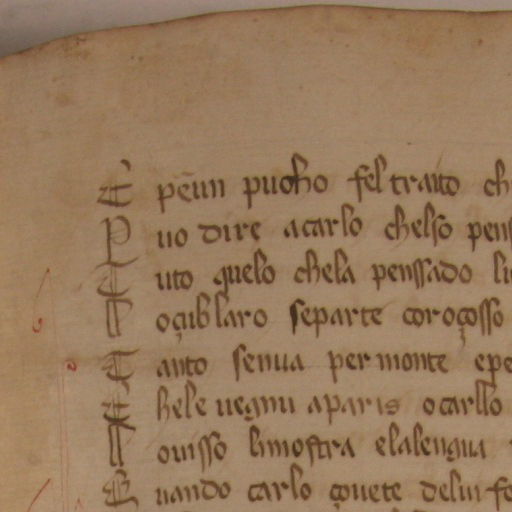 E pēun pucho sel traito ch
P uo dire acarlo chelso pens
T uto quelo chela penssado li
R oçiblaro separte coroçosso
T anto senua per monte epe
E hele uegnu aparis o carllo
M ouisso limostra elalengua
Q uando carlo çouete delui fo